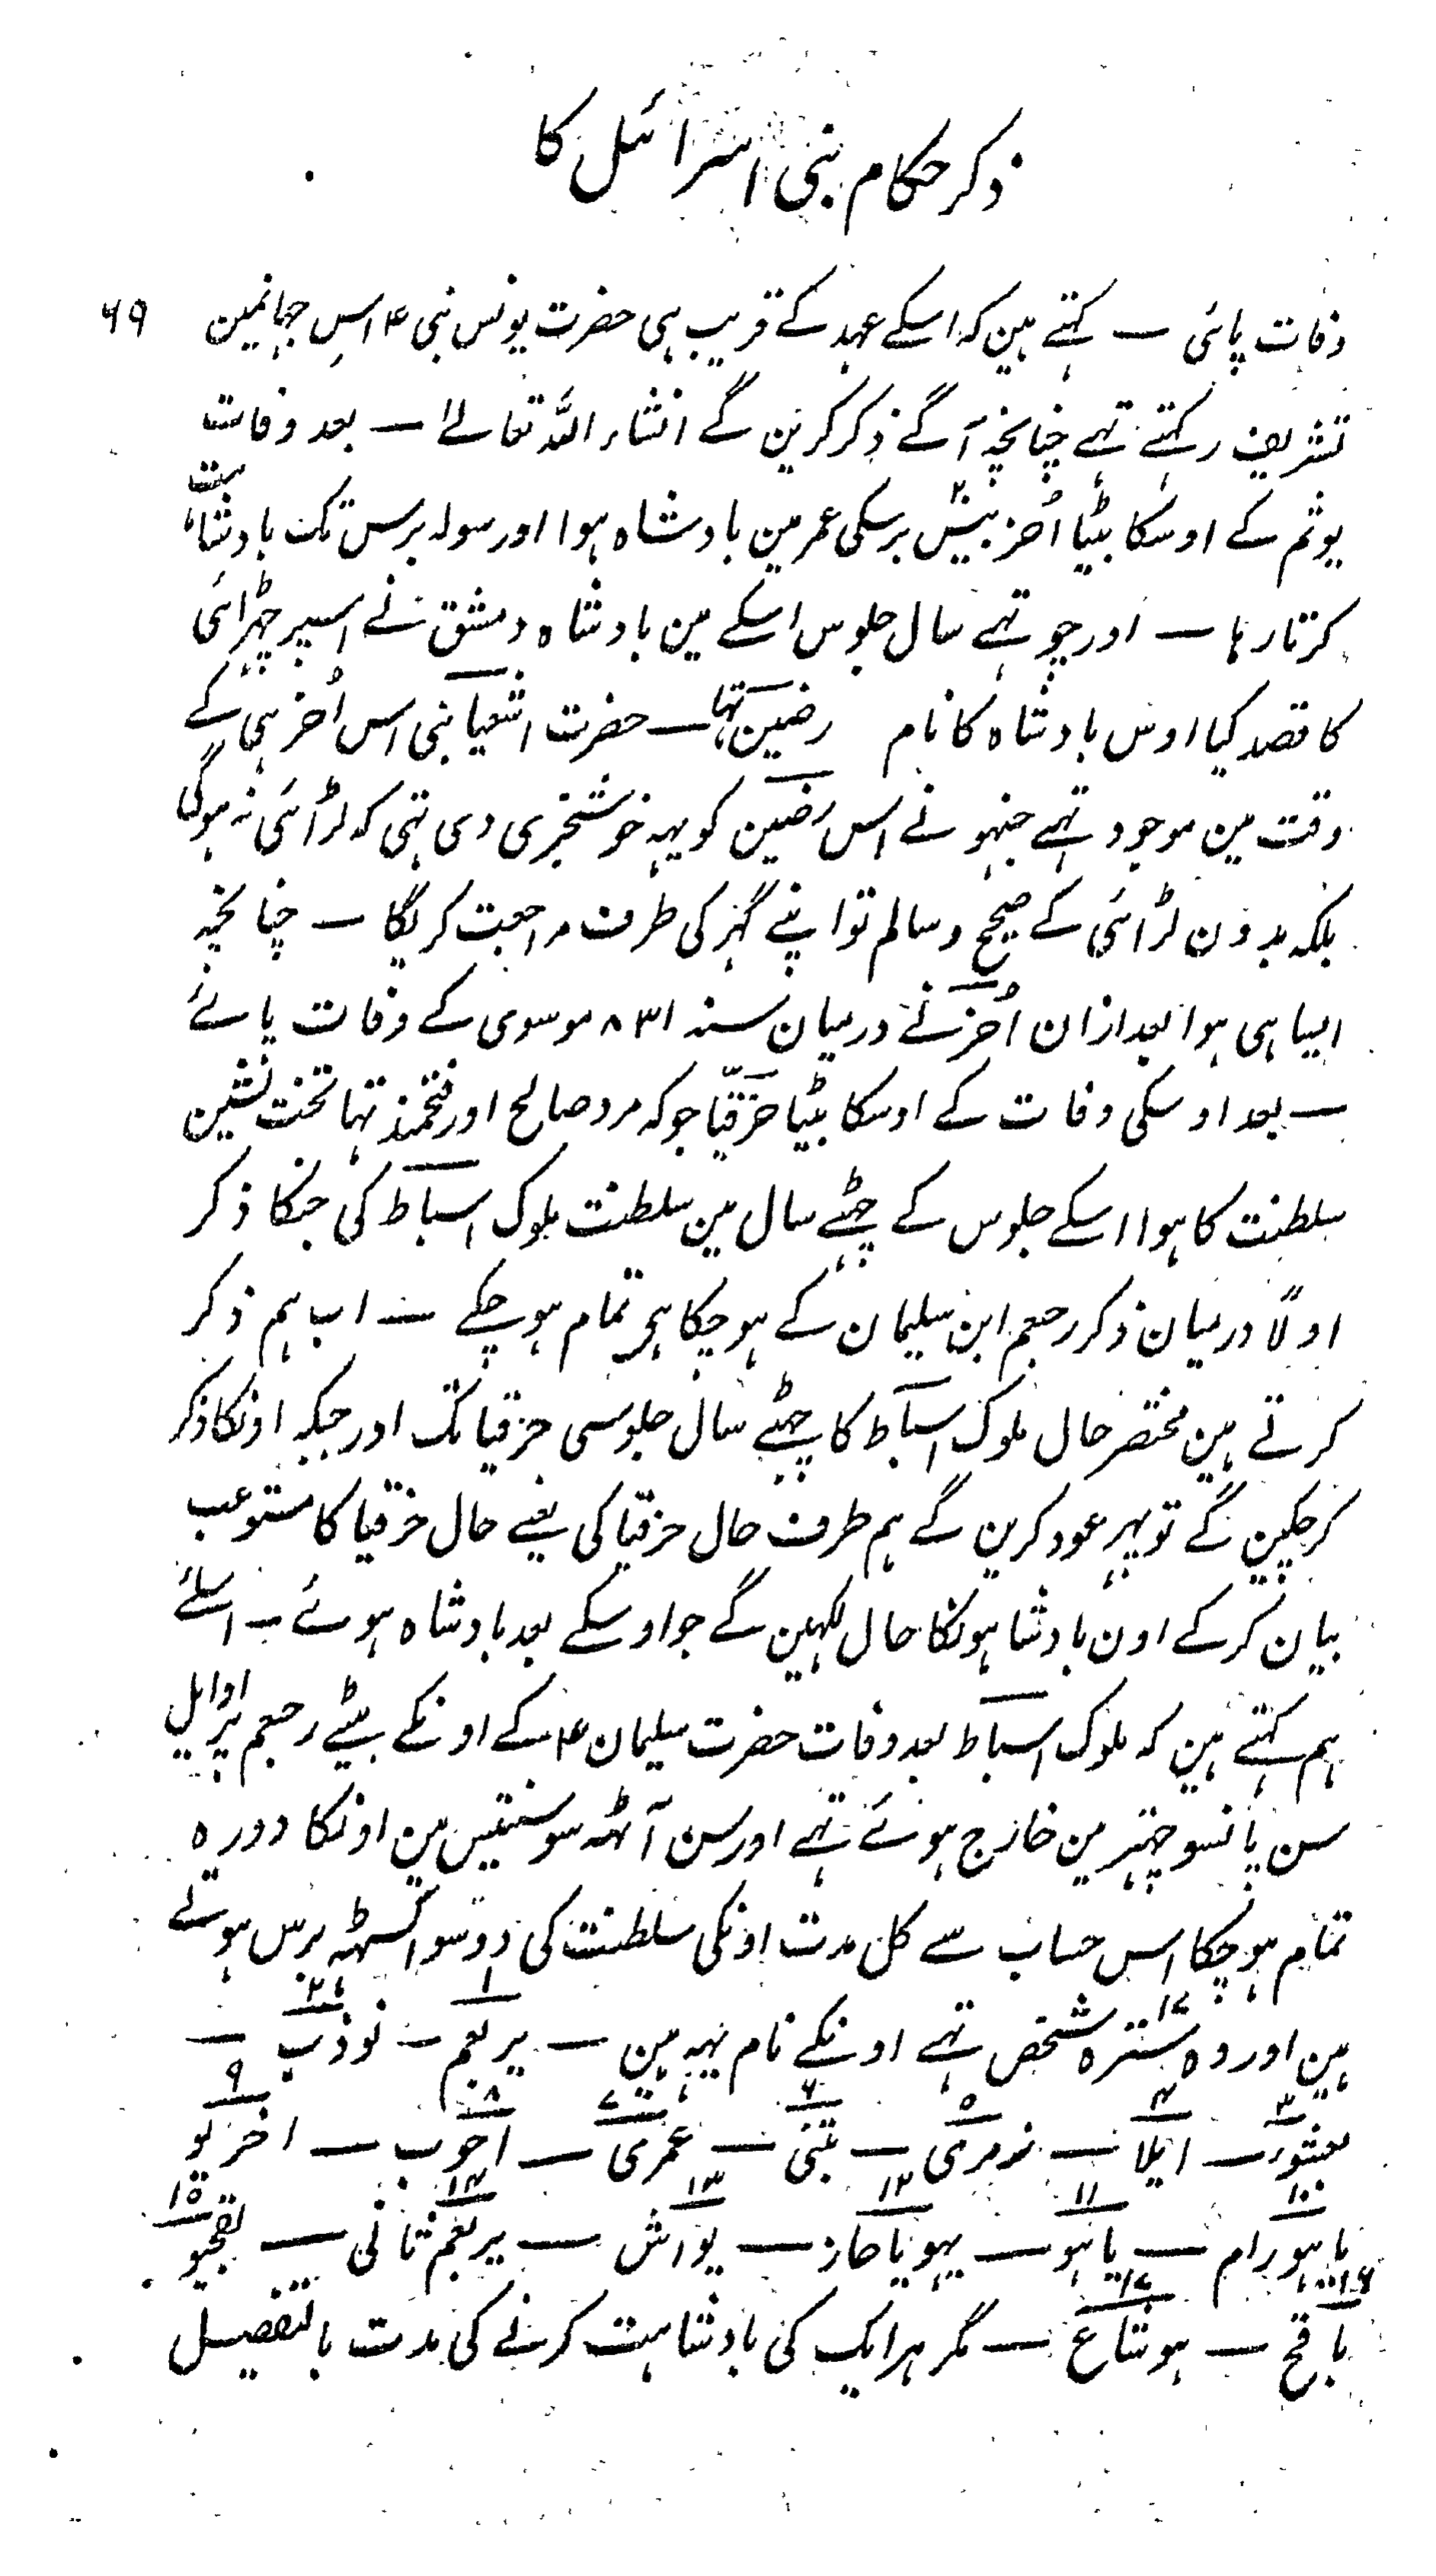 ذکر حکام بنی اسرائیل کا
۶۹
وفات پائی — کہتے ہین کہ اسکے عہد کے قریب ہی حضرت یونس نبی ۴ اسِ جہانمین
تشریف رکہتے تہے چنانچہ آگے ذکر کرین گے انشاء اللہ تعالےٰ — بعد وفات
یوثم کے اوسکا بیٹا اُحز بیسؔ برسکی عمر مین بادشاہ ہوا اور سولہ برس تک بادشاہت
کرتا رہا — اور چوتہے سال جلوس اسکے مین بادشاہ دمشق نے اسپر چڑہائی
کا قصد کیا اوس بادشاہ کا نام رضین تہا — حضرت اشعیا نبی اس اُحز ہی کے
وقت مین موجود تہے جنہو نے اس رضین کو یہہ خوشخبری دی تہی کہ لڑائی نہ ہوگی
بلکہ بدون لڑائی کے صحیح و سالم تو اپنے گہر کی طرف مراجعت کریگا — چنانچہ
ایسا ہی ہوا بعد ازان اُحز نے درمیان سنہ ۸۳۱ موسوی کے وفات پائے
— بعد اوسکی وفات کے اوسکا بیٹا حزقیّا جو کہ مرد صالح اور فتحمند تہا تخت نشین
سلطنت کا ہوا اسکے جلوس کے چہٹے سال مین سلطنت ملوک اسباط کی جنکا ذکر
اولاً درمیان ذکر رحبعم ابن سلیمان کے ہو چکا ہی تمام ہو چکے — اب ہم ذکر
کرتے ہین مختصر حال ملوک اسباط کا چہٹے سال جلوسی حزقیا تک اور جبکہ اونکا ذکر
کر چکین گے تو پہر عود کرین گے ہم طرف حال حزقیا کی یعنے حال حزقیا کا مستوعب
بیان کر کے اون بادشاہونکا حال لکہین گے جو اوسکے بعد بادشاہ ہوئے — اسلئے
ہم کہتے ہین کہ ملوک اسباط بعد وفات حضرت سلیمان ۴ کے اونکے بیٹے رحبعم پر اوایل
سن پانسو چہتر مین خارج ہوئے تہے اور سن آٹہہ سو سینتیس مین اونکا دورہ
تمام ہو چکا اس حساب سے کل مدت اونکی سلطنت کی دوسو اکسٹہہ برس ہوتے
ہین اور وہ سترہ ۱۷ شخص تہے اونکے نام یہہ ہین — یربعم ۱ — نوذب ۲ —
بعشو ۳ — ایلا ۴ — زمری ۵ — تبنی ۶ — عمری ۷ — احوب ۸ — اخزیو ۹
یاہورام ۱۰ — یاہو ۱۱ — یہویاحاز ۱۲ — یواش ۱۳ — یربعم ثانی ۱۴ — بقحیو ۱۵
باقح ۱۶ — ہوشاع ۱۷ — مگر ہر ایک کی بادشاہت کرنے کی مدت بالتفصیل